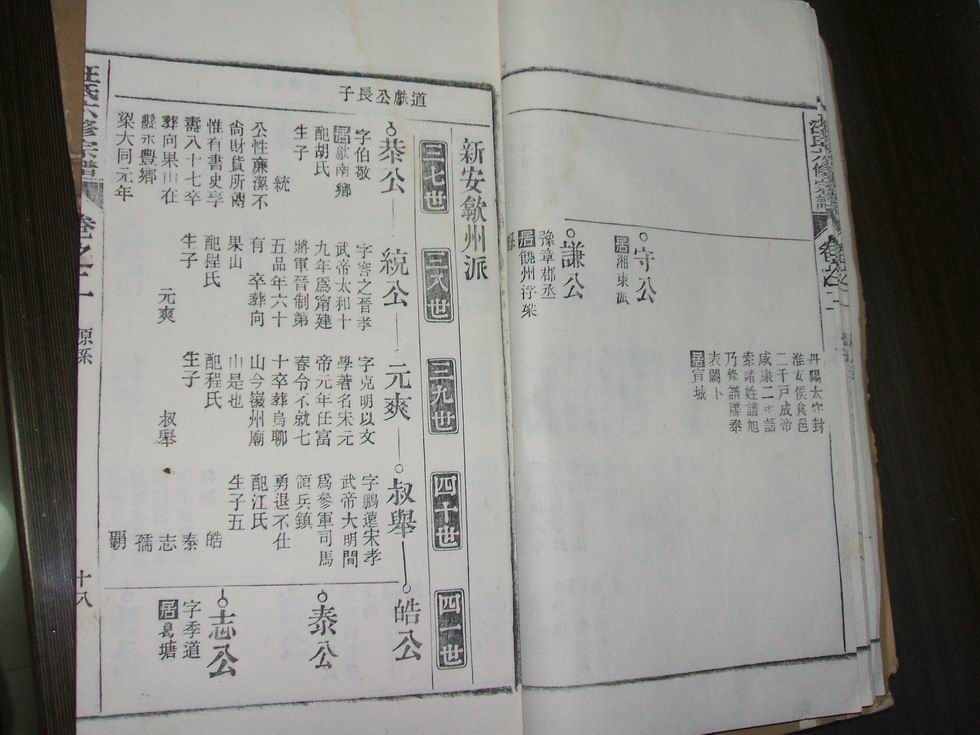 汪氏六修宗譜
卷之二
丹陽太守封
淮安侯食邑
二千戸成帝
咸康二年詔
索諸姓譜旭
乃修譜牒奉
表闕卜
居宣城
守公
居湘東派
謙公
豫章郡丞
居饒州浮梁
縣
新安歙州派
三七世
三八世
三九世
四十世
四一世
道獻公長子
恭公
字伯敬
居歙南鄉
配胡氏
生子
統
公性廉潔不
尙財貨所傳
惟有書史享
壽八十七卒
葬向果山在
縣永豐鄉
梁大同元年
統公
武帝太和十
九年爲甯建
將軍晉制第
五品年六十
有 卒葬向
果山
配程氏
生子
元爽
元爽
字克明以文
學著名宋元
帝元年任富
春令不就七
十卒葬烏聊
山今嶺州廟
山是也
配程氏
生子
叔舉
叔舉
字鵬遠宋孝
武帝大明間
爲參軍司馬
領兵鎮
勇退不仕
配江氏
生子五
皓
泰
志
孺
皓公
泰公
志公
字季道
居葛塘
汪氏六修宗譜
卷之二
源系
十八